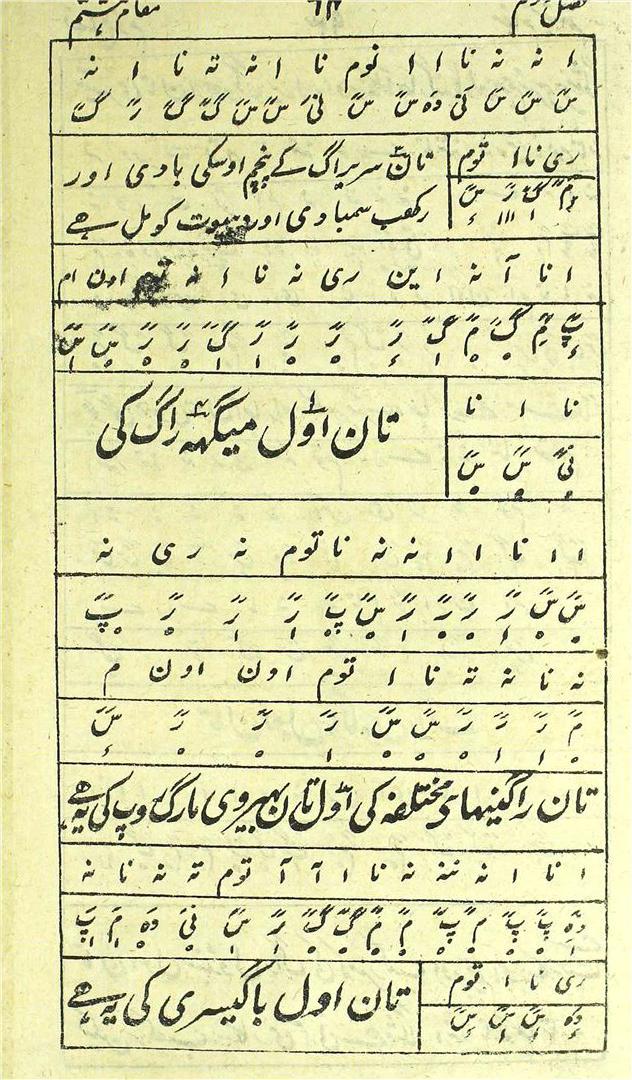 مقام ہشتم
ا نہ نہ نا ا ا توم نا ا نہ تہ نا ا نہ
سَ سَ سَ نِی دَہ سَ سَ نِی سَ سَ گَ گَ رَ گَ
ری نا ا توم
تان سریراگ کے پنچم اوسکی بادی اور
رکھب سمبادی اور دہیوت کومل ہے
ا نا آ نہ ا ین ری نہ نا ا نہ اون ام
پَ مَ گَ مَ گَ رَ رَ رَ رَ گَ رَ رَ سَ سَ
نا ا نا
نِی سَ سَ
تان اوّل میگہہ راگ کی
ا ا نا ا ا نہ نہ نا توم نہ ری نہ
سَ سَ رَ رَ رَ رَ سَ پَ رَ رَ رَ پَ
نہ نا نہ تہ نا ا توم اون اون م
مَ رَ رَ رَ سَ سَ رَ رَ رَ سَ
تان راگنیہای مختلفہ کی اوّل تان بہیروی مارگ روپ کی یہ ہے
ا نا ا نہ نہ نہ نا ا آ آ توم تہ نہ نا نہ
دَہ پَ پَ پَ مَ پَ مَ مَ گَ گَ رَ سَ نِی دَہ مَ پَ
ری نا ا توم
دَہ سَ سَ سَ
تان اول باگیسری کی یہ ہے